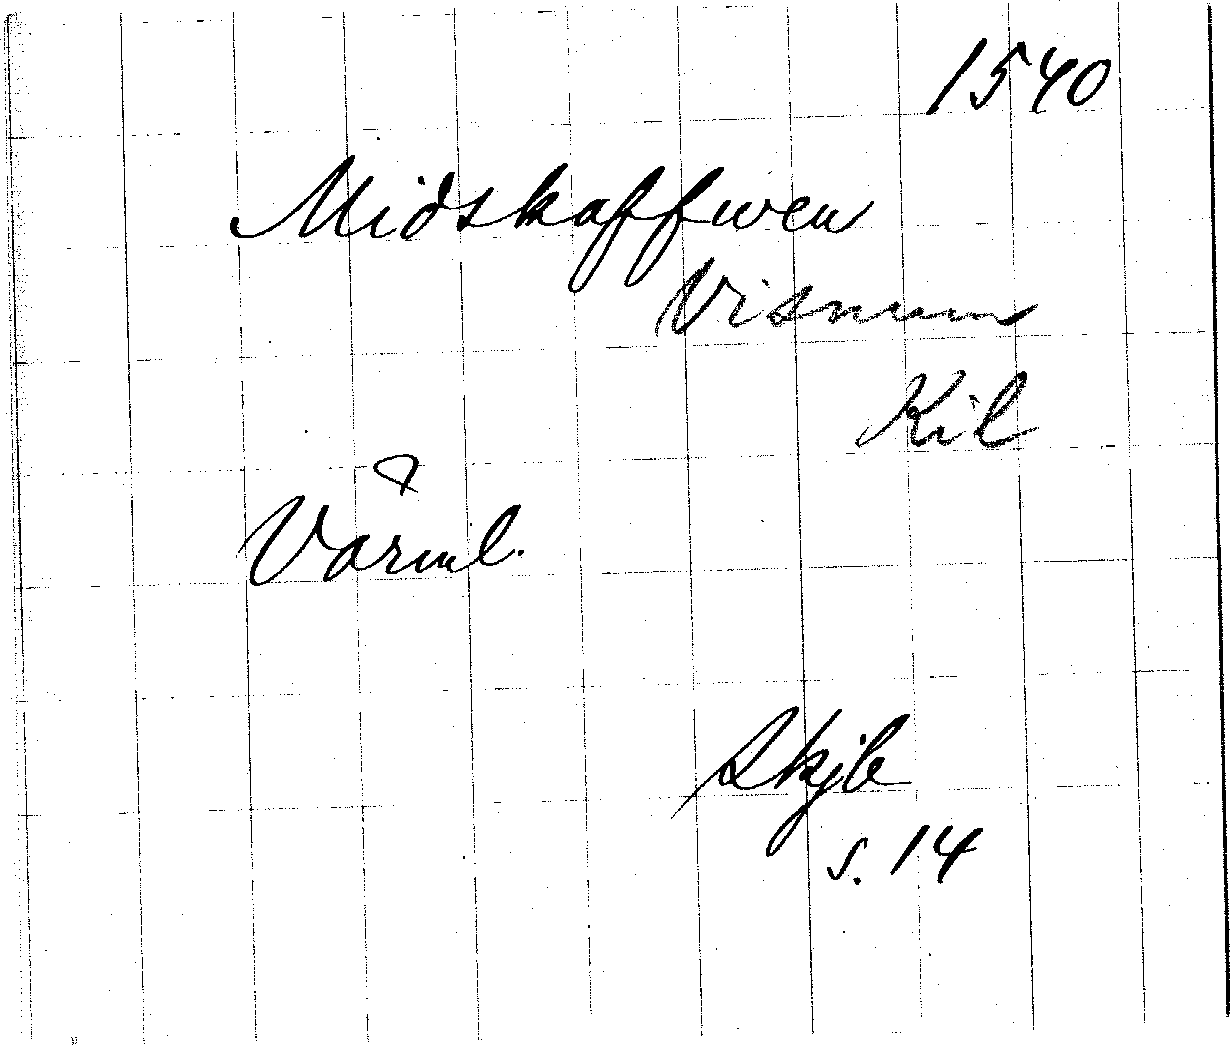 1540
Midskaffwen
Visnum
Kil
Värml.
Skjb
s. 14